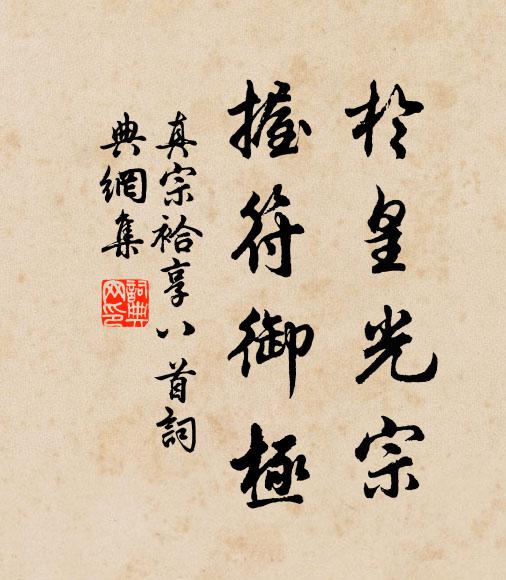 於皇光宗
握符御極
真宗祫享八首詞
典網集
詞典网印